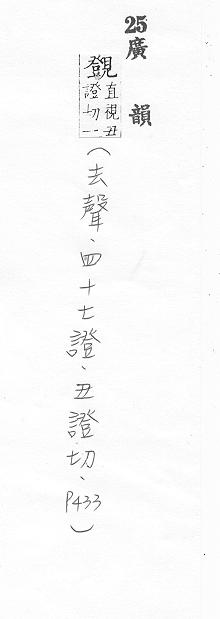 25廣韻
覴直視丑
證切一
(去聲、四十七證、丑證切、P433)